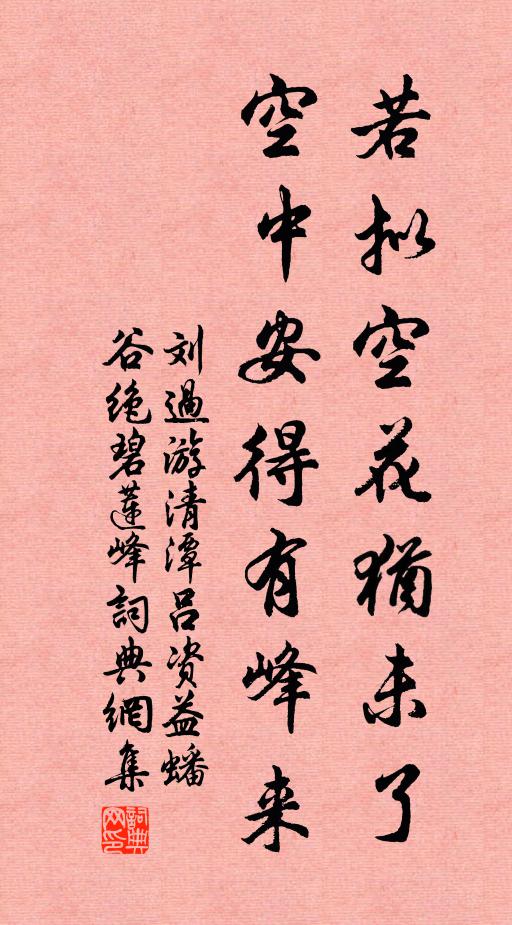 若拟空花猶未了
空中安得有峰来
刘過游清潭吕资益蟠
谷绝碧蓮峰詞典網集
詞典网印